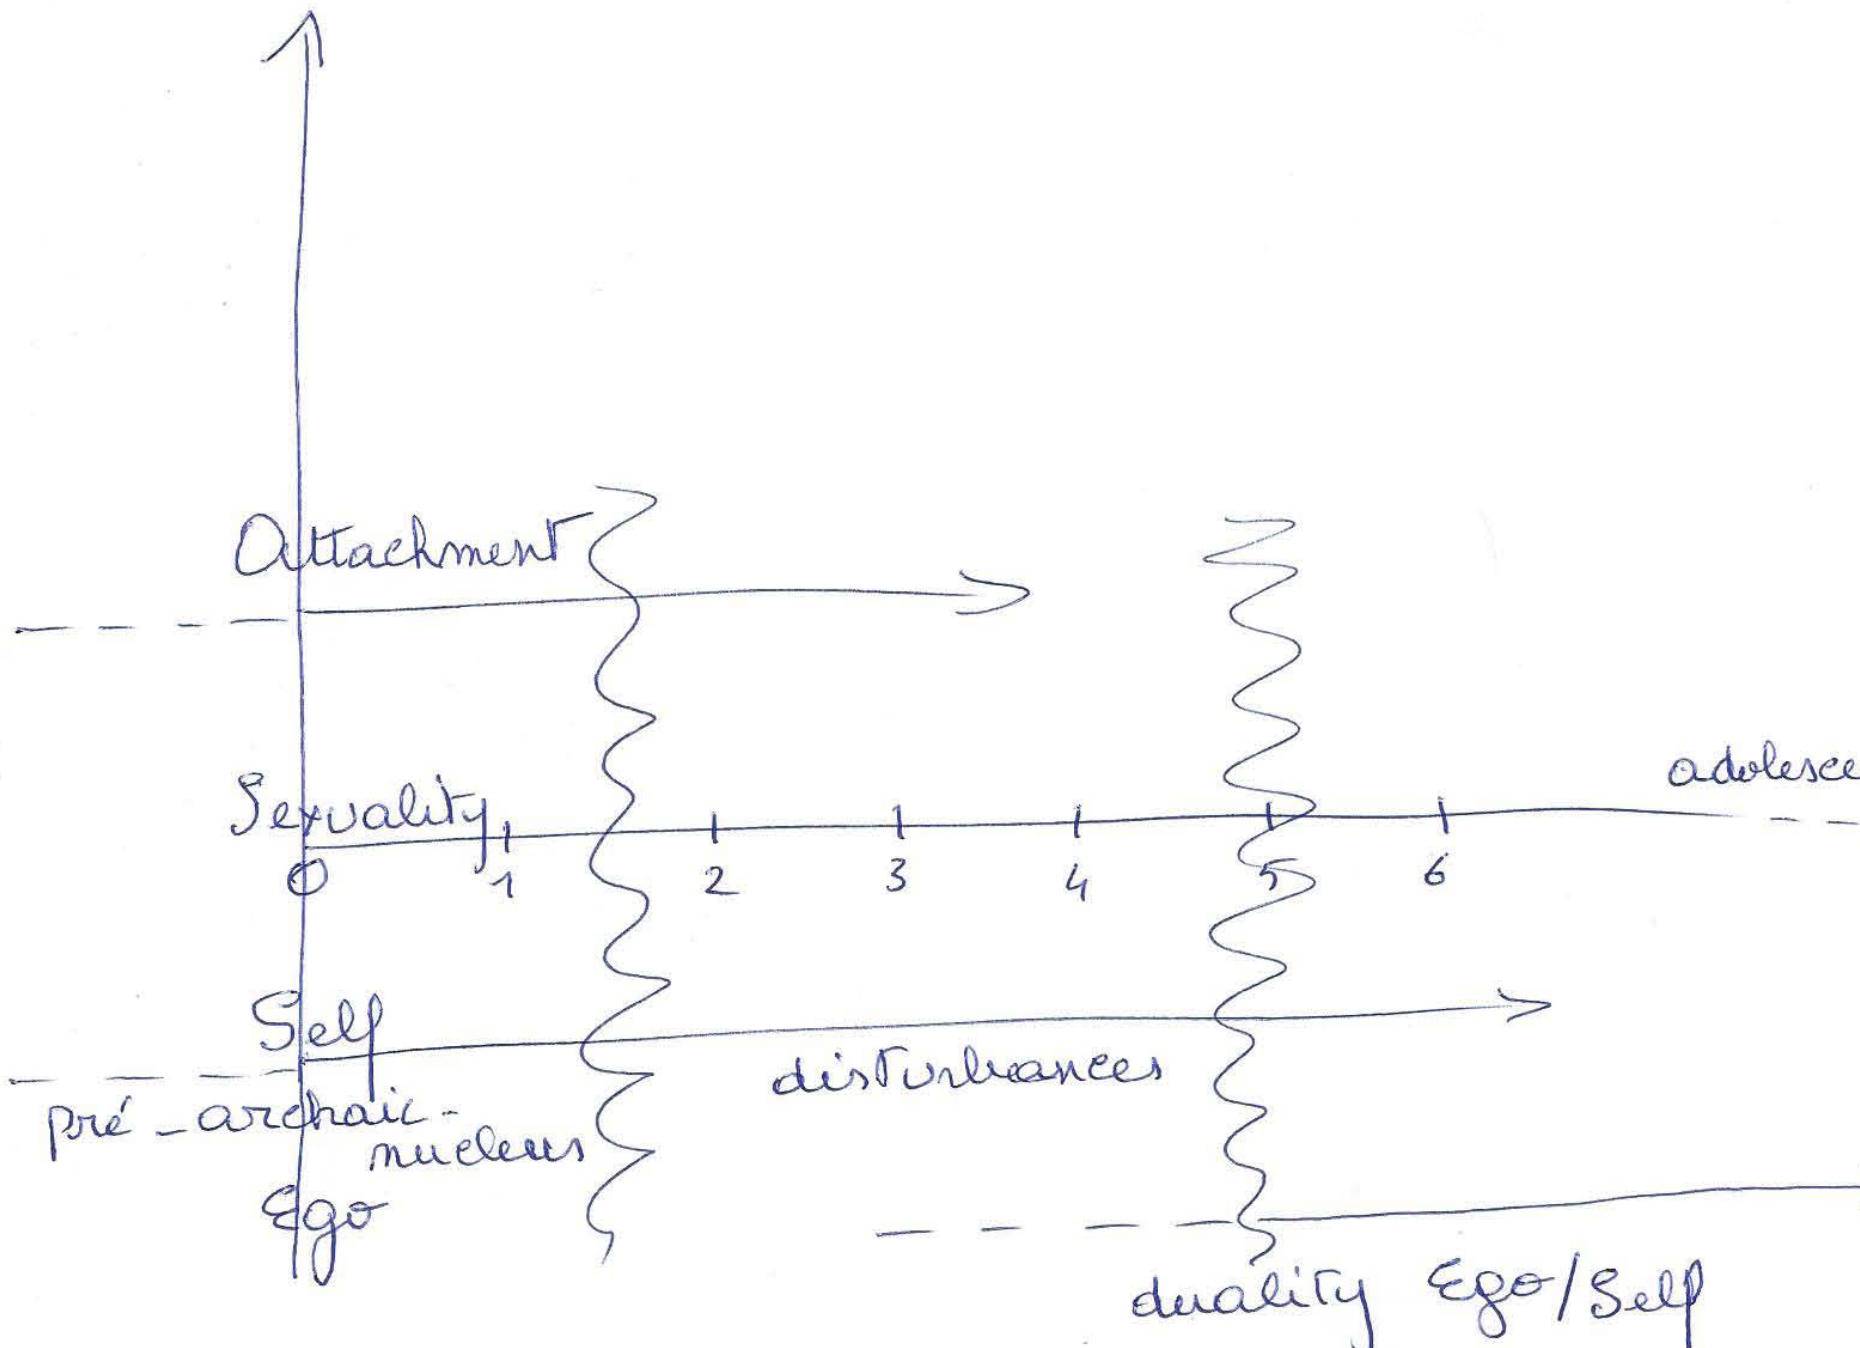 Attachment
adolesce
Sexuality
0 1 2 3 4 5 6
Self
disturbances
pré-archaic-
nucleus
Ego
duality Ego/Self